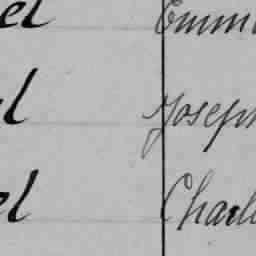 el Emm
el Joseph
el Charl